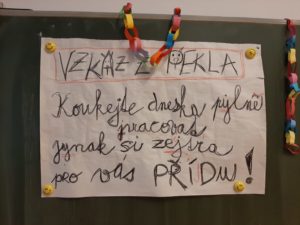 VZKAZ Z PEKLA
Koukejte dneska pylně
pracovat
jynak si zejtra
pro vás PŘÍDU!